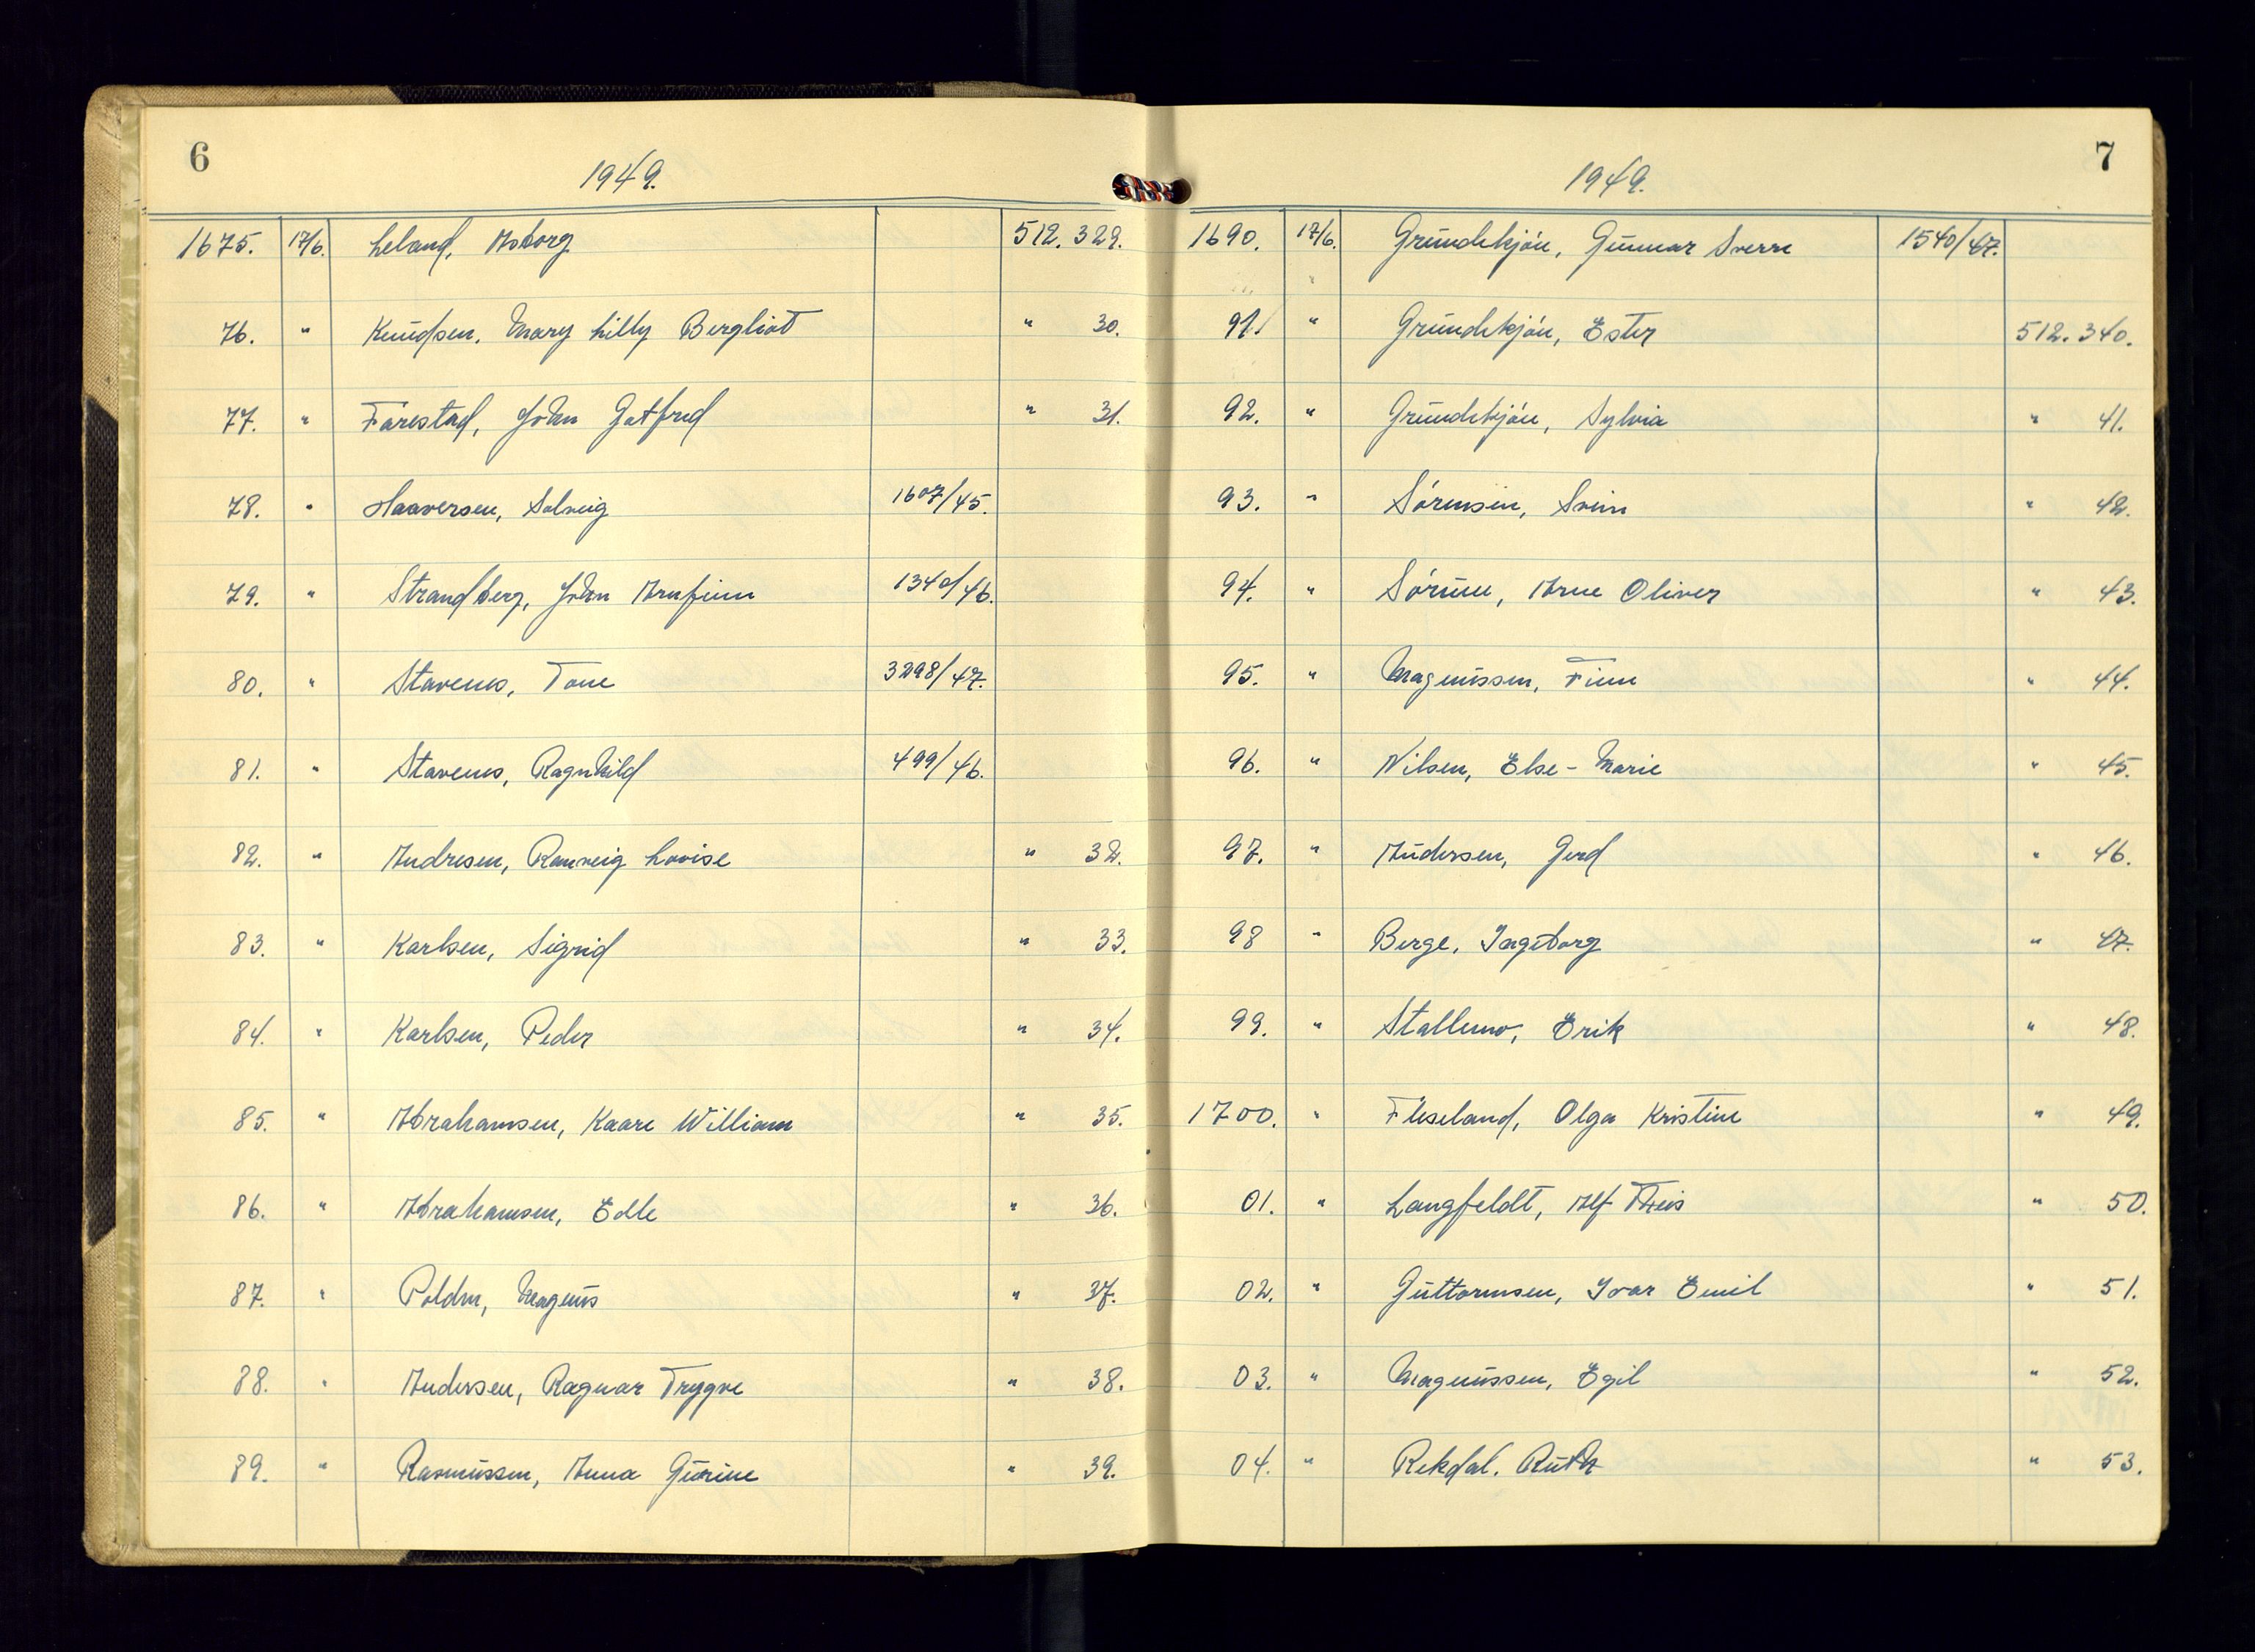 6
1949.
1675. 17/6. Leland, Asborg 512.329.
76. " Knudsen, Mary Lilly Bergliot " 30.
77. " Fårestad, Johan Gotfred " 31.
78. " Haaversen, Solveig 1607/45.
79. " Strandberg, John Arnfinn 1340/46.
80. " Stavenes, Tone 3298/47.
81. " Stavenes, Ragnhild 499/46.
82. " Andresen, Ranveig Lovise " 32.
83. " Karlsen, Sigrid " 33.
84. " Karlsen, Peder " 34.
85. " Abrahamsen, Kaare William " 35.
86. " Abrahamsen, Edle " 36.
87. " Polden, Magnus " 37.
88. " Andersen, Ragnar Trygve " 38.
89. " Rasmussen, Anna Gurine " 39.
7
1949.
1690. 17/6. Grundekjøn, Gunnar Sverre 1540/47.
91. " Grundekjøn, Ester 512.340.
92. " Grundekjøn, Sylvia " 41.
93. " Sørensen, Svein " 42.
94. " Sørum, Arne Oliver " 43.
95. " Magnussen, Finn " 44.
96. " Nilsen, Else-Marie " 45.
97. " Andersen, Gerd " 46.
98 " Berge, Ingeborg " 47.
99. " Stallemo, Erik " 48.
1700. " Fuseland, Olga Kristine " 49.
01. " Langfeldt, Alf Theis " 50.
02. " Guttormsen, Ivar Emil " 51.
03. " Magnussen, Egil " 52.
04. " Rekdal. Ruth " 53.